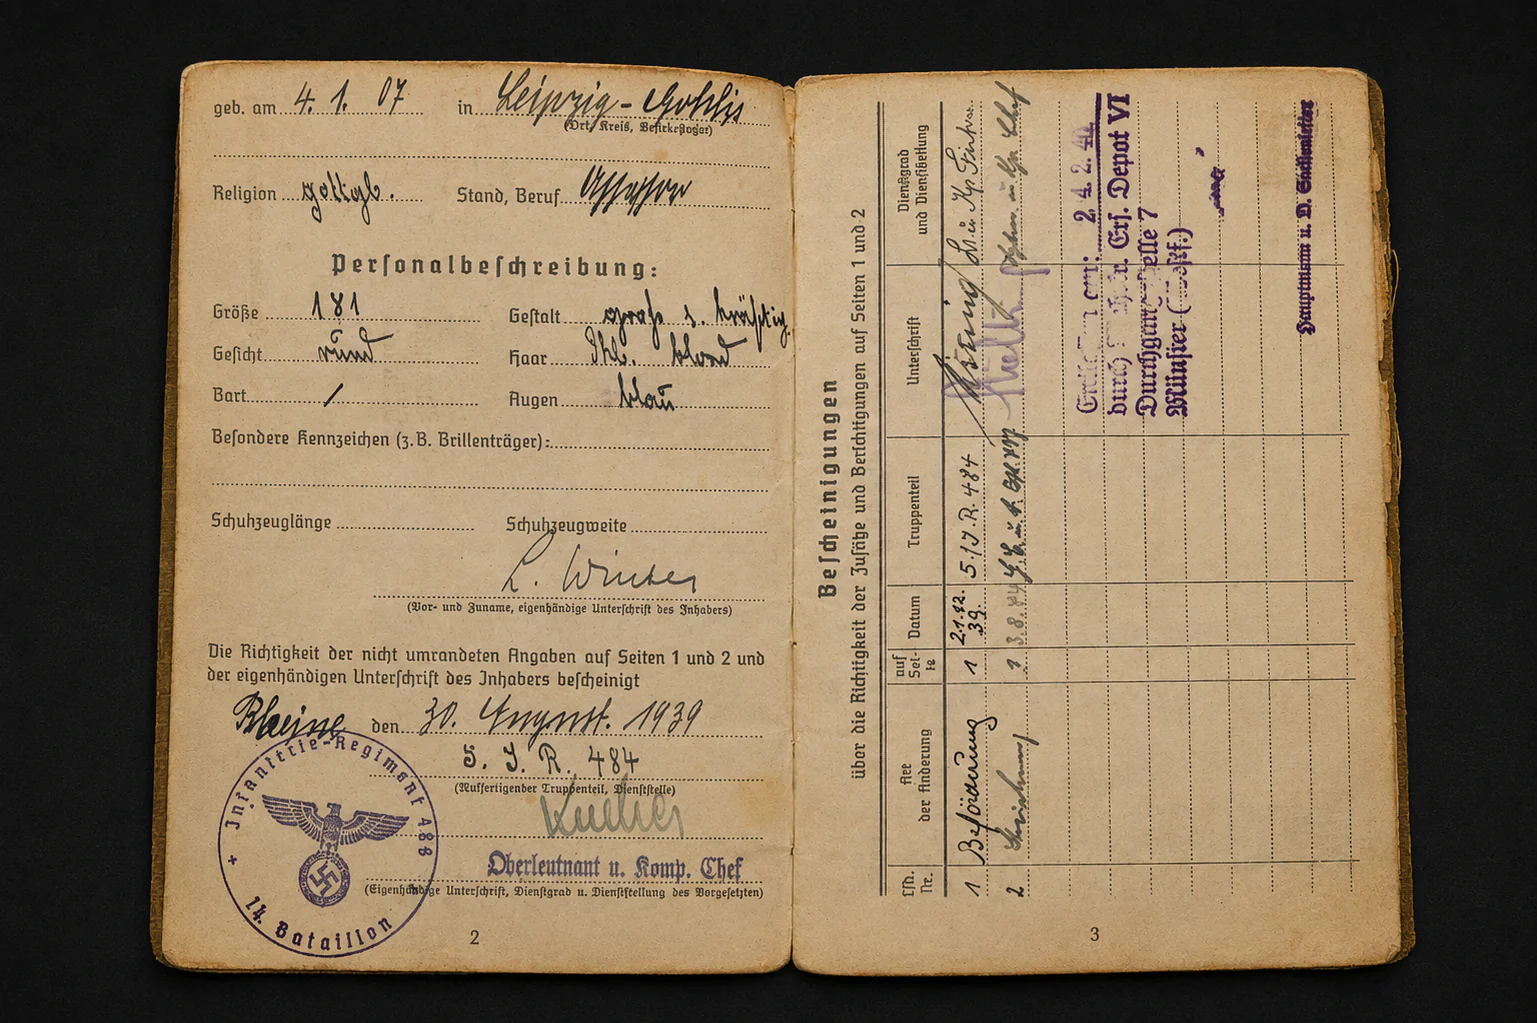 geb. am 4. 1. 07 in Leipzig - Gohlis
(Ort, Kreis,
Religion gottgl. Stand, Beruf Assessor
Personalbeschreibung:
Größe 181 Gestalt groß s. kräftig
Gesicht rund Haar blond
Bart / Augen blau
Besondere Kennzeichen (z.B. Brillenträger):
Schuhzeuglänge Schuhzeugweite
L. Winter
(Vor- und Zuname, eigenhändige Unterschrift des Inhabers)
Die Richtigkeit der nicht umrandeten Angaben auf Seiten 1 und 2 und
der eigenhändigen Unterschrift des Inhabers bescheinigt
Rheine den 30. August. 1939
5. J. R. 484
(Ausfertigender Truppenteil, Dienststelle)
Oberleutnant u. Komp. Chef
(Eigenhändige Unterschrift, Dienstgrad u. Dienststellung des Vorgesetzten)
Infanterie-Regiment 488
+ 14. Bataillon
2
Bescheinigungen
über die Richtigkeit der Zusätze und Berichtigungen auf Seiten 1 und 2
Lfd. Nr. Art der Änderung auf Sei- te Datum Truppenteil Unterschrift Dienstgrad und Dienststellung
1 Beförderung 1 21.12. 39. 5./J.R. 484 Lt. u. Kp.
2 1 3.8.
24.2.40
durch Ers. Depot VI
Durchgangsstelle 7
Münster (Westf.)
Hauptmann u. D.
3